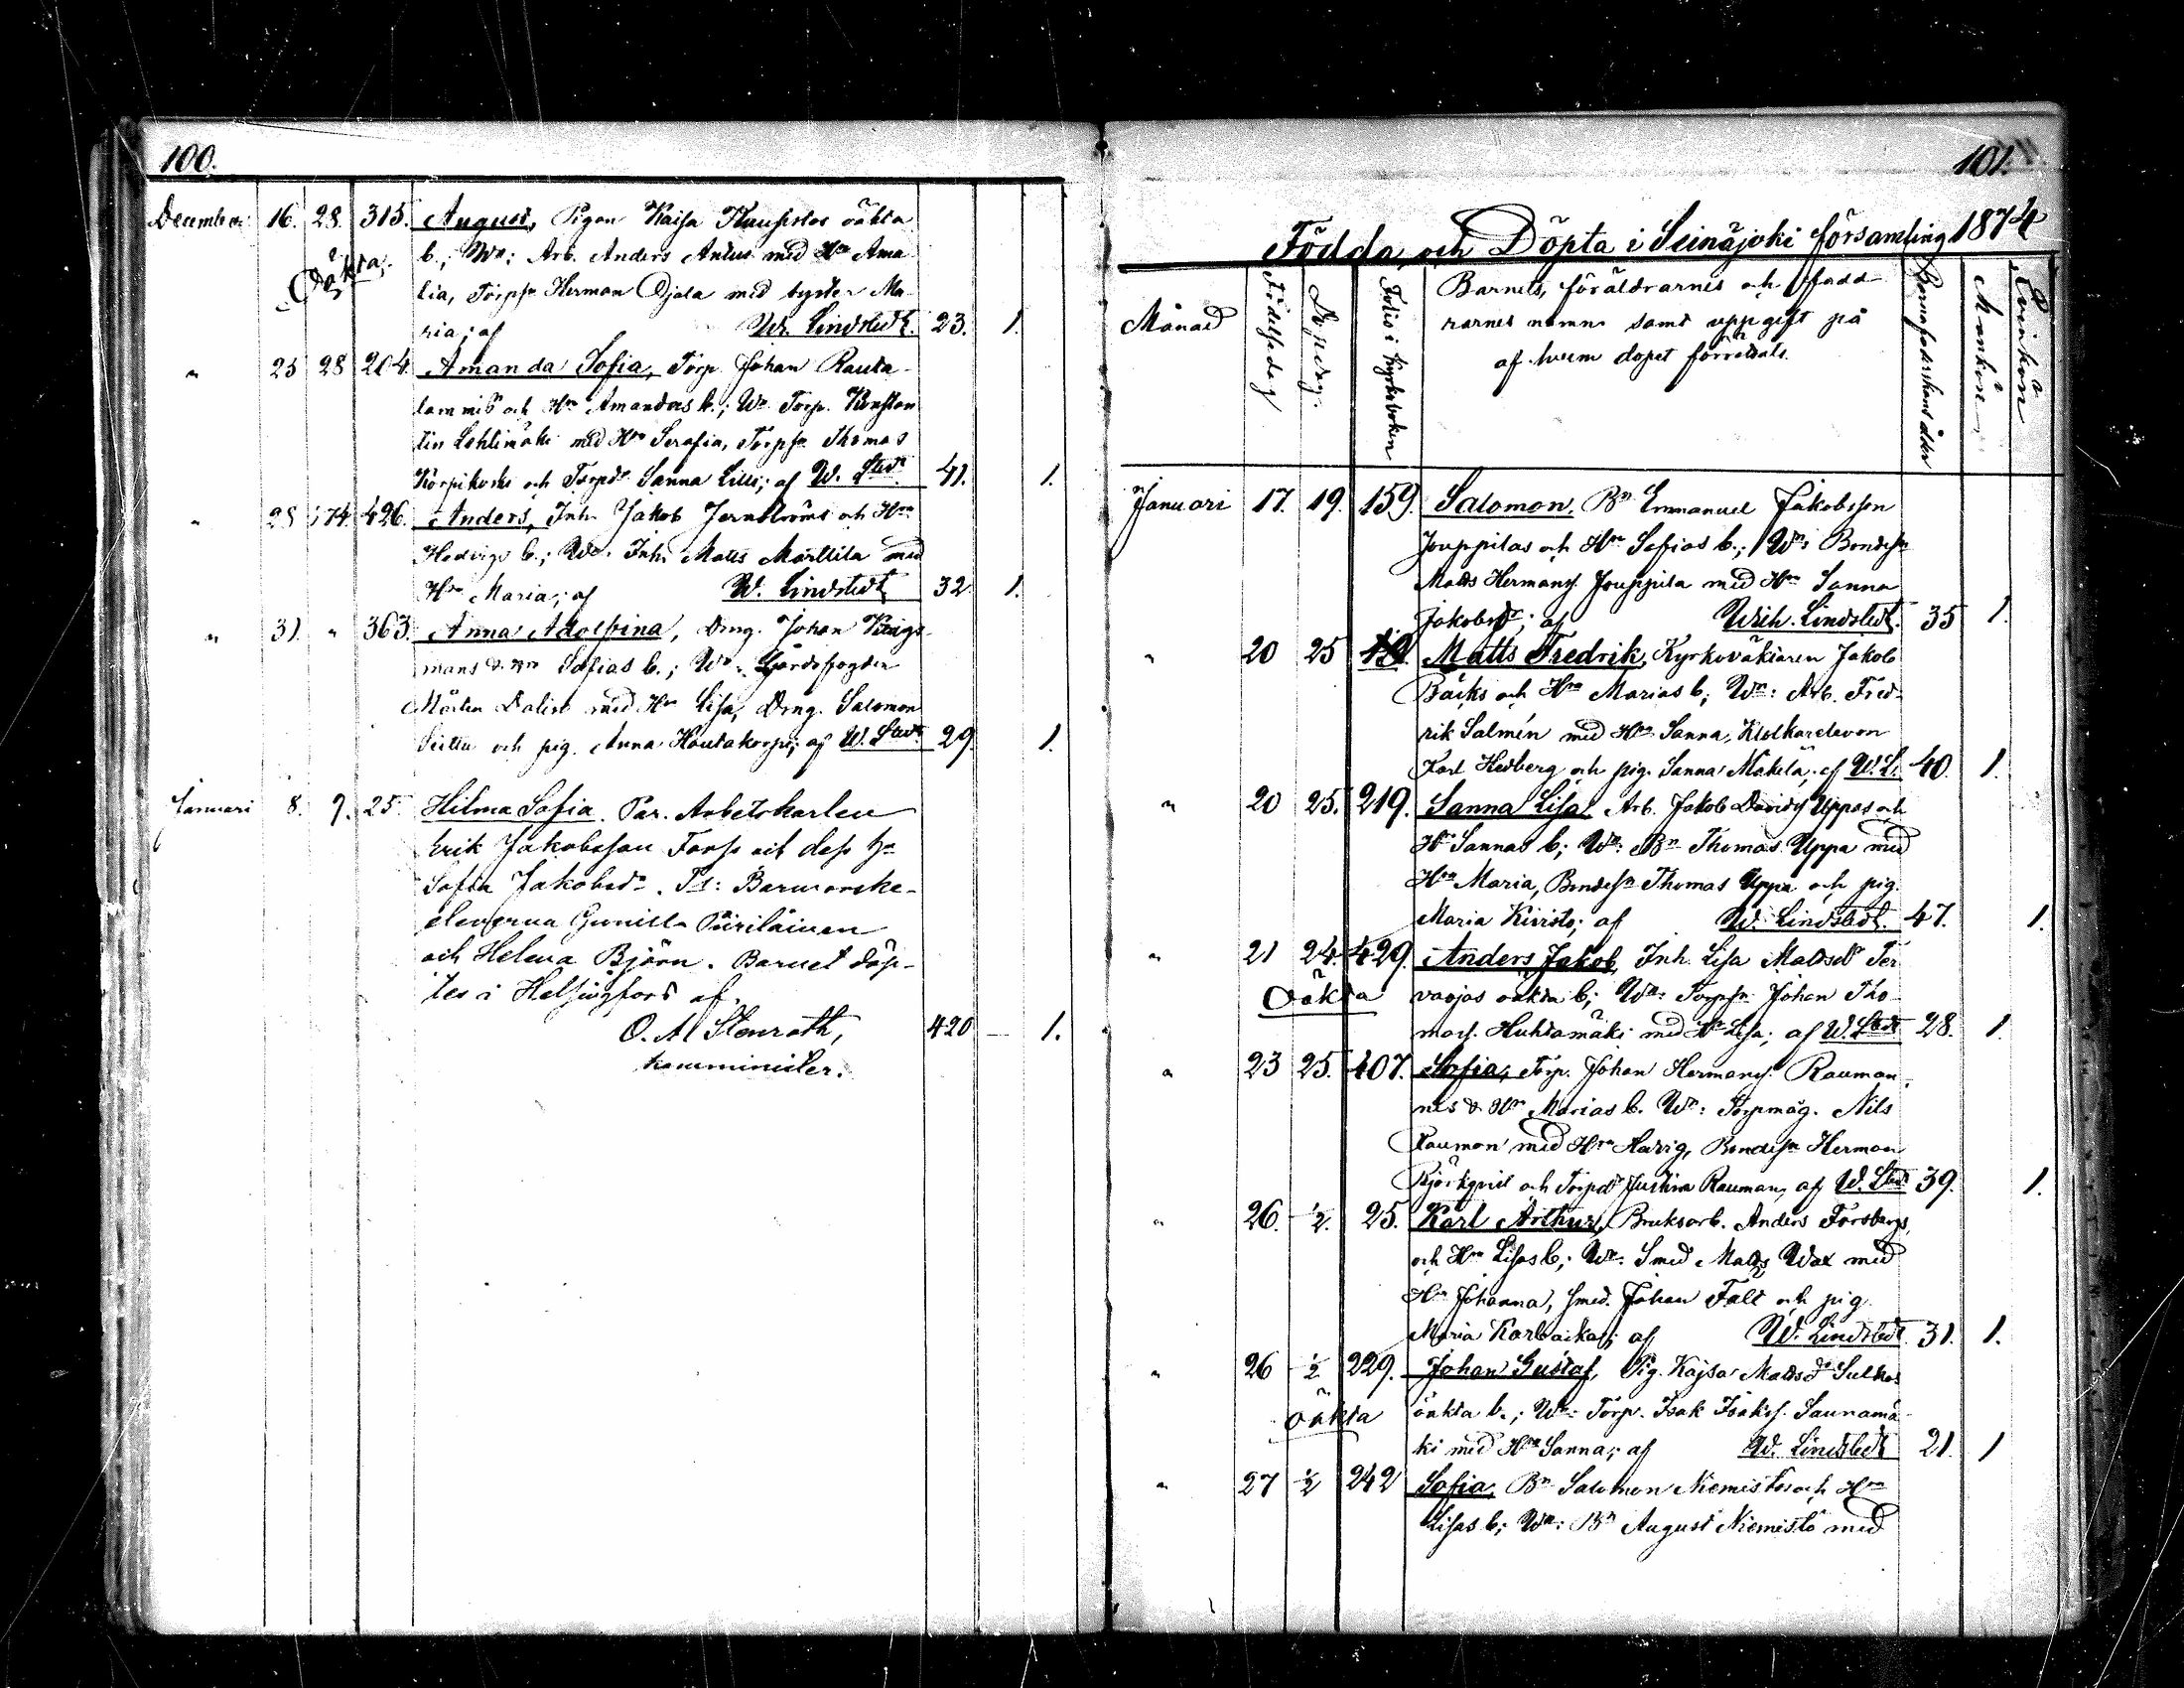 100.
December 16. 28. 315. August, Pigan Kaisa oäkta
b.; Wn: Arb. Anders Antus med Hu Ama-
Oäkta.
lia, Torpsn Herman Ojala med syster Ma-
ria; af W. Lindstedt. 23. 1.
" 25 28 204. Amanda Sofia, Torp. Johan Rauta-
lammis och Hu Amandas b.; Wn Torp. Konstan
tin Lehtimäki med Hu Serafia, Torpsn Thomas
Korpikoski och Torpdr Sanna Lilli; af W. Lstdt. 41. 1.
" 28 426. Anders, Inh. Jakob Jernströms och Hus
Hedvigs b.; Wn: Inh. Matts Marttila med
Hu Maria; af W. Lindstedt 32 1.
" 31. " 363. Anna Adolfina, Dräng. Johan Krigs-
mans o. Hus Sofias b.; Wn: Gårdsfogden
Mårten Dalin med Hu Lisa, Dräng. Salomon
och pig. Anna Hautakorpi; af W. Lstdt. 29. 1.
Januari 8. 9. 25. Hilma Sofia. Par. Arbetskarlen
Erik Jakobsson Fors och dess hu
Sofia Jakobsdr. Ts: Barnmorske-
eleverna Gunilla Piiriläinen
och Helena Björn. Barnet döp-
tes i Helsingfors af
O. A. Stenroth, 420 — 1.
komminister.
101.
Födda och Döpta i Seinäjoki församling 1874
Månad
Födelsedag
Dopedag.
Folio i kyrkoboken
Barnets, föräldrarnes och fadd-
rarnes namn samt uppgift på
af hvem dopet förrättats.
Barnaföderskans ålder
Mankön
Qvinkön
Januari 17. 19. 159. Salomon, Bn Emmanuel Jakobsson
Jouppilas och Hu Sofias b.; Wn: Bondesn
Matts Hermanss. Jouppila med Hu Sanna
Jakobsdr; af Wilh. Lindstedt. 35 1.
" 20 25 Matts Fredrik, Kyrkoväktaren Jakob
Bäcks och Hu Marias b; Wn: Arb. Fred-
rik Salmén med Hu Sanna, Klockareleven
Karl Hedberg och pig. Sanna Mäkelä; af W. L. 40. 1.
" 20 25. 219. Sanna Lisa, Arb. Jakob Davidss Uppas och
Hu Sannas b; Wn: Bn Thomas Uppa med
Hu Maria, Bondesn Thomas Uppa och pig.
Maria Kivistö; af W. Lindstedt. 47. 1.
" 21 24. 429. Anders Jakob, Inh. Lisa Mattsdr Ter-
Oäkta vaojas oäkta b; Wn: Torpsn Johan Tho-
mass. Huhtamäki med Hu Lisa; af W. Lstdt 28. 1.
" 23 25. 407. Sofia, Torp. Johan Hermanss. Rauman-
nis o. Hu Marias b. Wn: Torpmåg. Nils
Rauman med Hu Hedvig, Bondesn Herman
Björkqvist och Torpdr Justina Rauman, af W. Lstdt 39. 1.
" 26. ½. 25. Karl Arthur, Bruksarb. Anders Forsbergs
och Hu Lisas b; Wn: Smed Matts Wax med
Hu Johanna, smed. Johan Fält och pig.
Maria; af W. Lindstedt. 31. 1.
" 26 ½ 229. Johan Gustaf, Pig. Kajsa Mattsdr Sulkas
oäkta oäkta b.; Wn: Torp. Isak Isakss. Saunamä-
ki med Hu Sanna; af W. Lindstedt 21. 1
" 27 ½ 242 Sofia, Bn Salomon Niemistös och Hu
Lisas b; Wn: Bn August Niemistö med